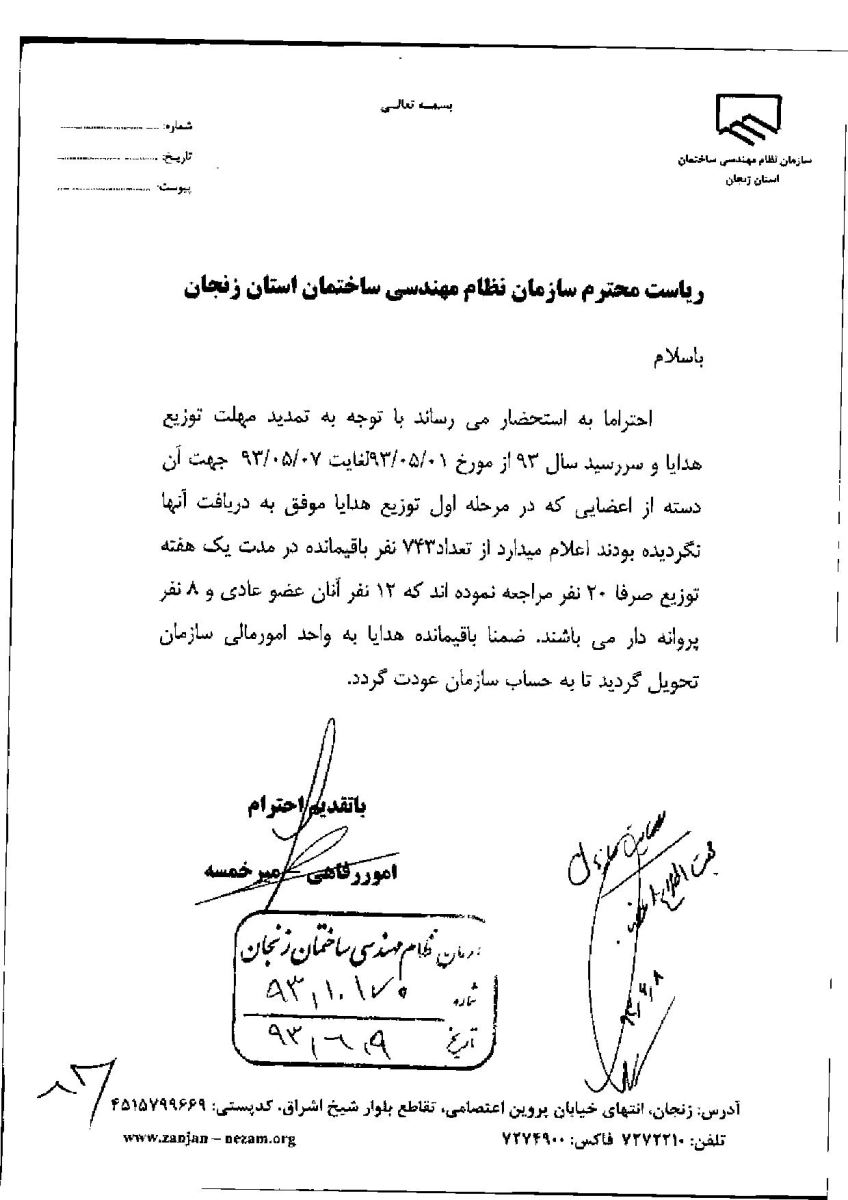 بسمه تعالی
سازمان نظام مهندسی ساختمان
استان زنجان
شماره:
تاریخ:
پیوست:
ریاست محترم سازمان نظام مهندسی ساختمان استان زنجان
باسلام
احتراما به استحضار می رساند با توجه به تمدید مهلت توزیع
هدایا و سررسید سال ۹۳ از مورخ ۹۳/۰۵/۰۱لغایت ۹۳/۰۵/۰۷ جهت آن
دسته از اعضایی که در مرحله اول توزیع هدایا موفق به دریافت آنها
نگردیده بودند اعلام میدارد از تعداد۷۴۳ نفر باقیمانده در مدت یک هفته
توزیع صرفا ۲۰ نفر مراجعه نموده اند که ۱۲ نفر آنان عضو عادی و ۸ نفر
پروانه دار می باشند. ضمنا باقیمانده هدایا به واحد امورمالی سازمان
تحویل گردید تا به حساب سازمان عودت گردد.
باتقدیم احترام
اموررفاهی – میرخمسه
نظام مهندسی ساختمان زنجان
شماره
تاریخ ۹۳/۶/۹
آدرس: زنجان، انتهای خیابان پروین اعتصامی، تقاطع بلوار شیخ اشراق، کدپستی: ۴۵۱۵۷۹۹۶۶۹
تلفن: ۷۲۷۲۲۱۰ فاکس: ۷۲۷۴۹۰۰
www.zanjan – nezam.org